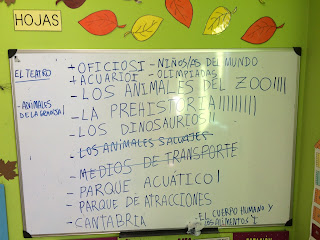 HOJAS
EL TEATRO
- ANIMALES
DE LA GRANJA I
+ OFICIOS I - NIÑOS/AS DEL MUNDO
+ ACUARIO I - OLIMPIADAS
- LOS ANIMALES DEL ZOO IIII
- LA PREHISTORIA IIIIIIIII
- LOS DINOSAURIOS II
- LOS ANIMALES SALVAJES
- MEDIOS DE TRANSPORTE
- PARQUE ACUÁTICO I
- PARQUE DE ATRACCIONES
- CANTABRIA
- EL CUERPO HUMANO Y
LOS ALIMENTOS I